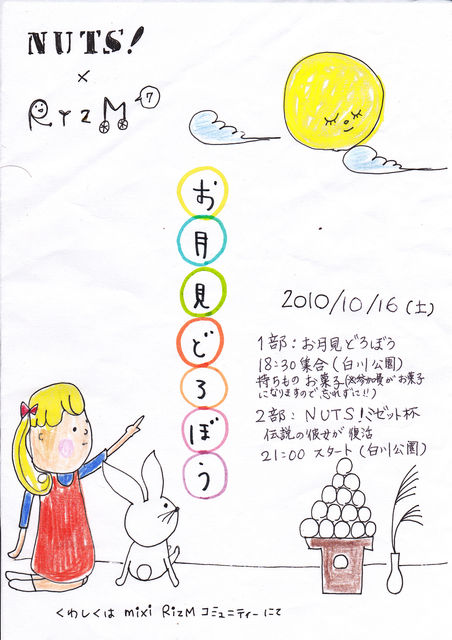 NUTS!
×
RYzM 7
お月見どろぼう
2010/10/16(土)
1部:お月見どろぼう
18:30集合(白川公園)
持ちもの お菓子(※参加費がお菓子
になりますので、忘れずに!!)
2部:NUTS!ミゼット杯
伝説の彼女が復活
21:00 スタート(白川公園)
くわしくは mixi RizM コミュニティーにて